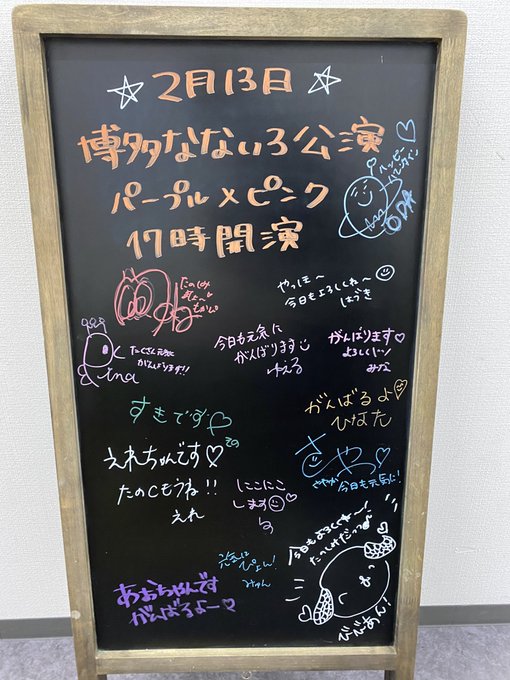 ☆ 2月13日 ☆
博多なないろ公演
パープル×ピンク
17時開演
ハッピー
バレンタイン
ODA
たのしみ
やっほ〜
今日もよろしくね〜
はづき
たくさん元気に
がんばります!!
ina
今日も元気に
がんばります
ゆえる
がんばります♡
よろしく
みな
がんばるよ♡
ひなた
すきです♡
えれちゃんです♡
たのしもうね!!
えれ
にこにこ
します
さや♡
今日も元気に!
元気にぴょん!
みゆん
今日もよろしく
たのしみだっ
びびあん!
あおちゃんです
がんばるよー♡